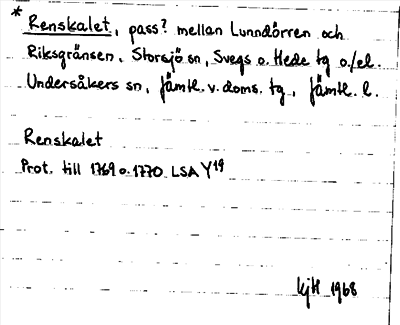 * Renskalet, pass? mellan Lunndörren och
Riksgränsen. Storsjö sn, Svegs o. Hede tg o./el.
Undersåkers sn, Jämtl. v. doms. tg, Jämtl. l.
Renskalet
Prot. till 1769 o. 1770 LSA Y19
kjH 1968